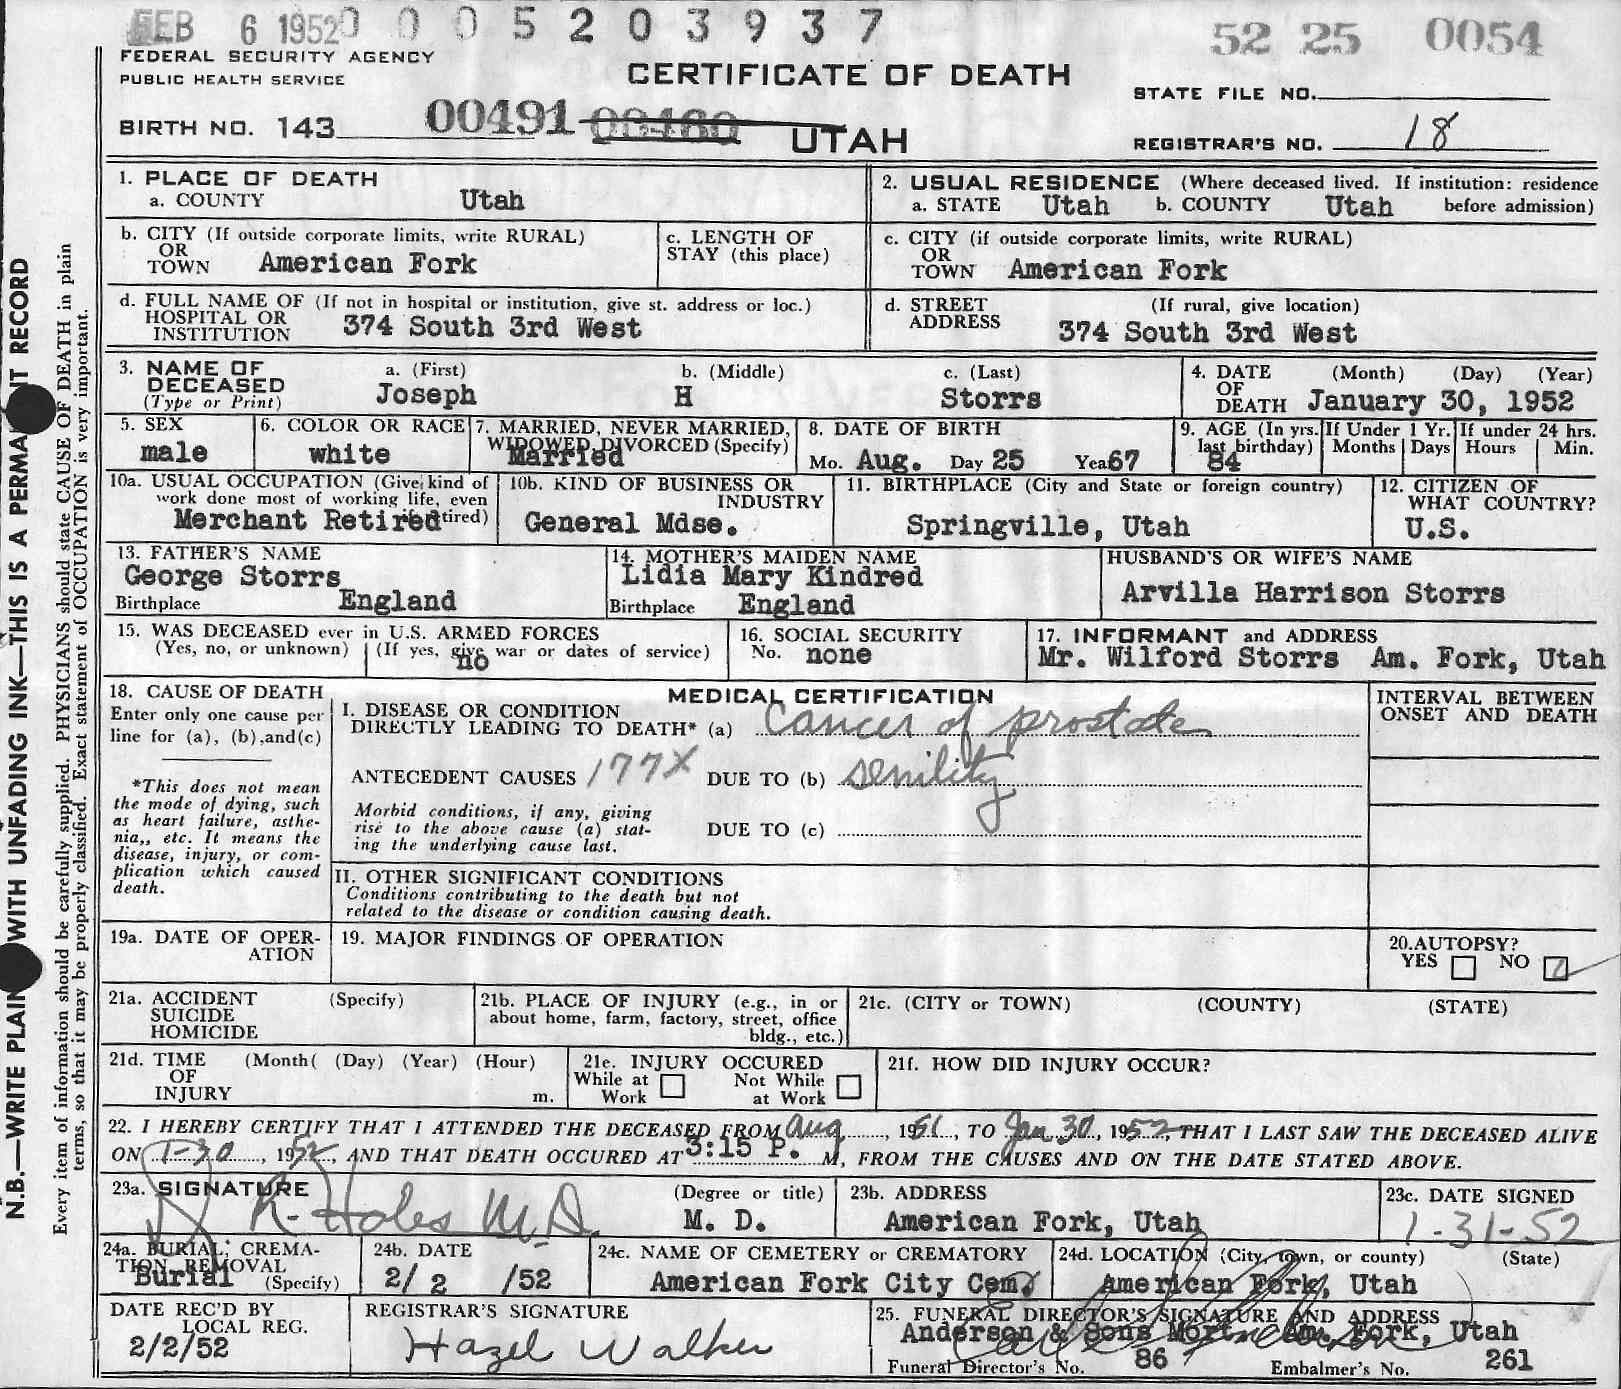 FEB 6 1952 0 0 0 5 2 0 3 9 3 7
52 25 0054
FEDERAL SECURITY AGENCY
PUBLIC HEALTH SERVICE
CERTIFICATE OF DEATH
STATE FILE NO.
BIRTH NO. 143 00491 00460 UTAH
REGISTRAR'S NO. 18
N.B.—WRITE PLAIN WITH UNFADING INK—THIS IS A PERMA NT RECORD
Every item of information should be carefully supplied. PHYSICIANS should state CAUSE OF DEATH in plain
terms, so that it may be properly classified. Exact statement of OCCUPATION is very important.
1. PLACE OF DEATH
a. COUNTY Utah
2. USUAL RESIDENCE (Where deceased lived. If institution: residence
a. STATE Utah b. COUNTY Utah before admission)
b. CITY (If outside corporate limits, write RURAL)
OR
TOWN American Fork
c. LENGTH OF
STAY (this place)
c. CITY (if outside corporate limits, write RURAL)
OR
TOWN American Fork
d. FULL NAME OF (If not in hospital or institution, give st. address or loc.)
HOSPITAL OR
INSTITUTION 374 South 3rd West
d. STREET (If rural, give location)
ADDRESS 374 South 3rd West
3. NAME OF DECEASED
(Type or Print)
a. (First) b. (Middle) c. (Last)
Joseph H Storrs
4. DATE (Month) (Day) (Year)
OF
DEATH January 30, 1952
5. SEX
male
6. COLOR OR RACE
white
7. MARRIED, NEVER MARRIED,
WIDOWED, DIVORCED (Specify)
Married
8. DATE OF BIRTH
Mo. Aug. Day 25 Year 67
9. AGE (In yrs. last birthday)
84
If Under 1 Yr.
Months Days
If under 24 hrs.
Hours Min.
10a. USUAL OCCUPATION (Give kind of
work done most of working life, even
Merchant Retired tired)
10b. KIND OF BUSINESS OR
INDUSTRY
General Mdse.
11. BIRTHPLACE (City and State or foreign country)
Springville, Utah
12. CITIZEN OF
WHAT COUNTRY?
U.S.
13. FATHER'S NAME
George Storrs
Birthplace England
14. MOTHER'S MAIDEN NAME
Lidia Mary Kindred
Birthplace England
HUSBAND'S OR WIFE'S NAME
Arvilla Harrison Storrs
15. WAS DECEASED ever in U.S. ARMED FORCES
(Yes, no, or unknown) (If yes, give war or dates of service)
no
16. SOCIAL SECURITY
No. none
17. INFORMANT and ADDRESS
Mr. Wilford Storrs Am. Fork, Utah
18. CAUSE OF DEATH
Enter only one cause per
line for (a), (b),and(c)
*This does not mean
the mode of dying, such
as heart failure, asthe-
nia,, etc. It means the
disease, injury, or com-
plication which caused
death.
MEDICAL CERTIFICATION
I. DISEASE OR CONDITION
DIRECTLY LEADING TO DEATH* (a) Cancer of prostate
ANTECEDENT CAUSES 177X DUE TO (b) senility
Morbid conditions, if any, giving
rise to the above cause (a) stat-
ing the underlying cause last.
DUE TO (c)
II. OTHER SIGNIFICANT CONDITIONS
Conditions contributing to the death but not
related to the disease or condition causing death.
INTERVAL BETWEEN
ONSET AND DEATH
19a. DATE OF OPER-
ATION
19. MAJOR FINDINGS OF OPERATION
20.AUTOPSY?
YES NO
21a. ACCIDENT (Specify)
SUICIDE
HOMICIDE
21b. PLACE OF INJURY (e.g., in or
about home, farm, factory, street, office
bldg., etc.)
21c. (CITY or TOWN) (COUNTY) (STATE)
21d. TIME (Month( (Day) (Year) (Hour)
OF
INJURY m.
21e. INJURY OCCURED
While at Work Not While at Work
21f. HOW DID INJURY OCCUR?
22. I HEREBY CERTIFY THAT I ATTENDED THE DECEASED FROM Aug, 1951, TO Jan 30, 1952, THAT I LAST SAW THE DECEASED ALIVE
ON 1-30, 1952, AND THAT DEATH OCCURED AT 3:15 P. M, FROM THE CAUSES AND ON THE DATE STATED ABOVE.
23a. SIGNATURE (Degree or title)
M.D. M. D.
23b. ADDRESS
American Fork, Utah
23c. DATE SIGNED
1-31-52
24a. BURIAL, CREMA-
TION, REMOVAL
Burial (Specify)
24b. DATE
2/ 2 /52
24c. NAME OF CEMETERY or CREMATORY
American Fork City Cem.
24d. LOCATION (City, town, or county) (State)
American Fork, Utah
DATE REC'D BY
LOCAL REG.
2/2/52
REGISTRAR'S SIGNATURE
Hazel Walker
25. FUNERAL DIRECTOR'S SIGNATURE AND ADDRESS
Anderson & Sons Mort. Am. Fork, Utah
Funeral Director's No. 86 Embalmer's No. 261